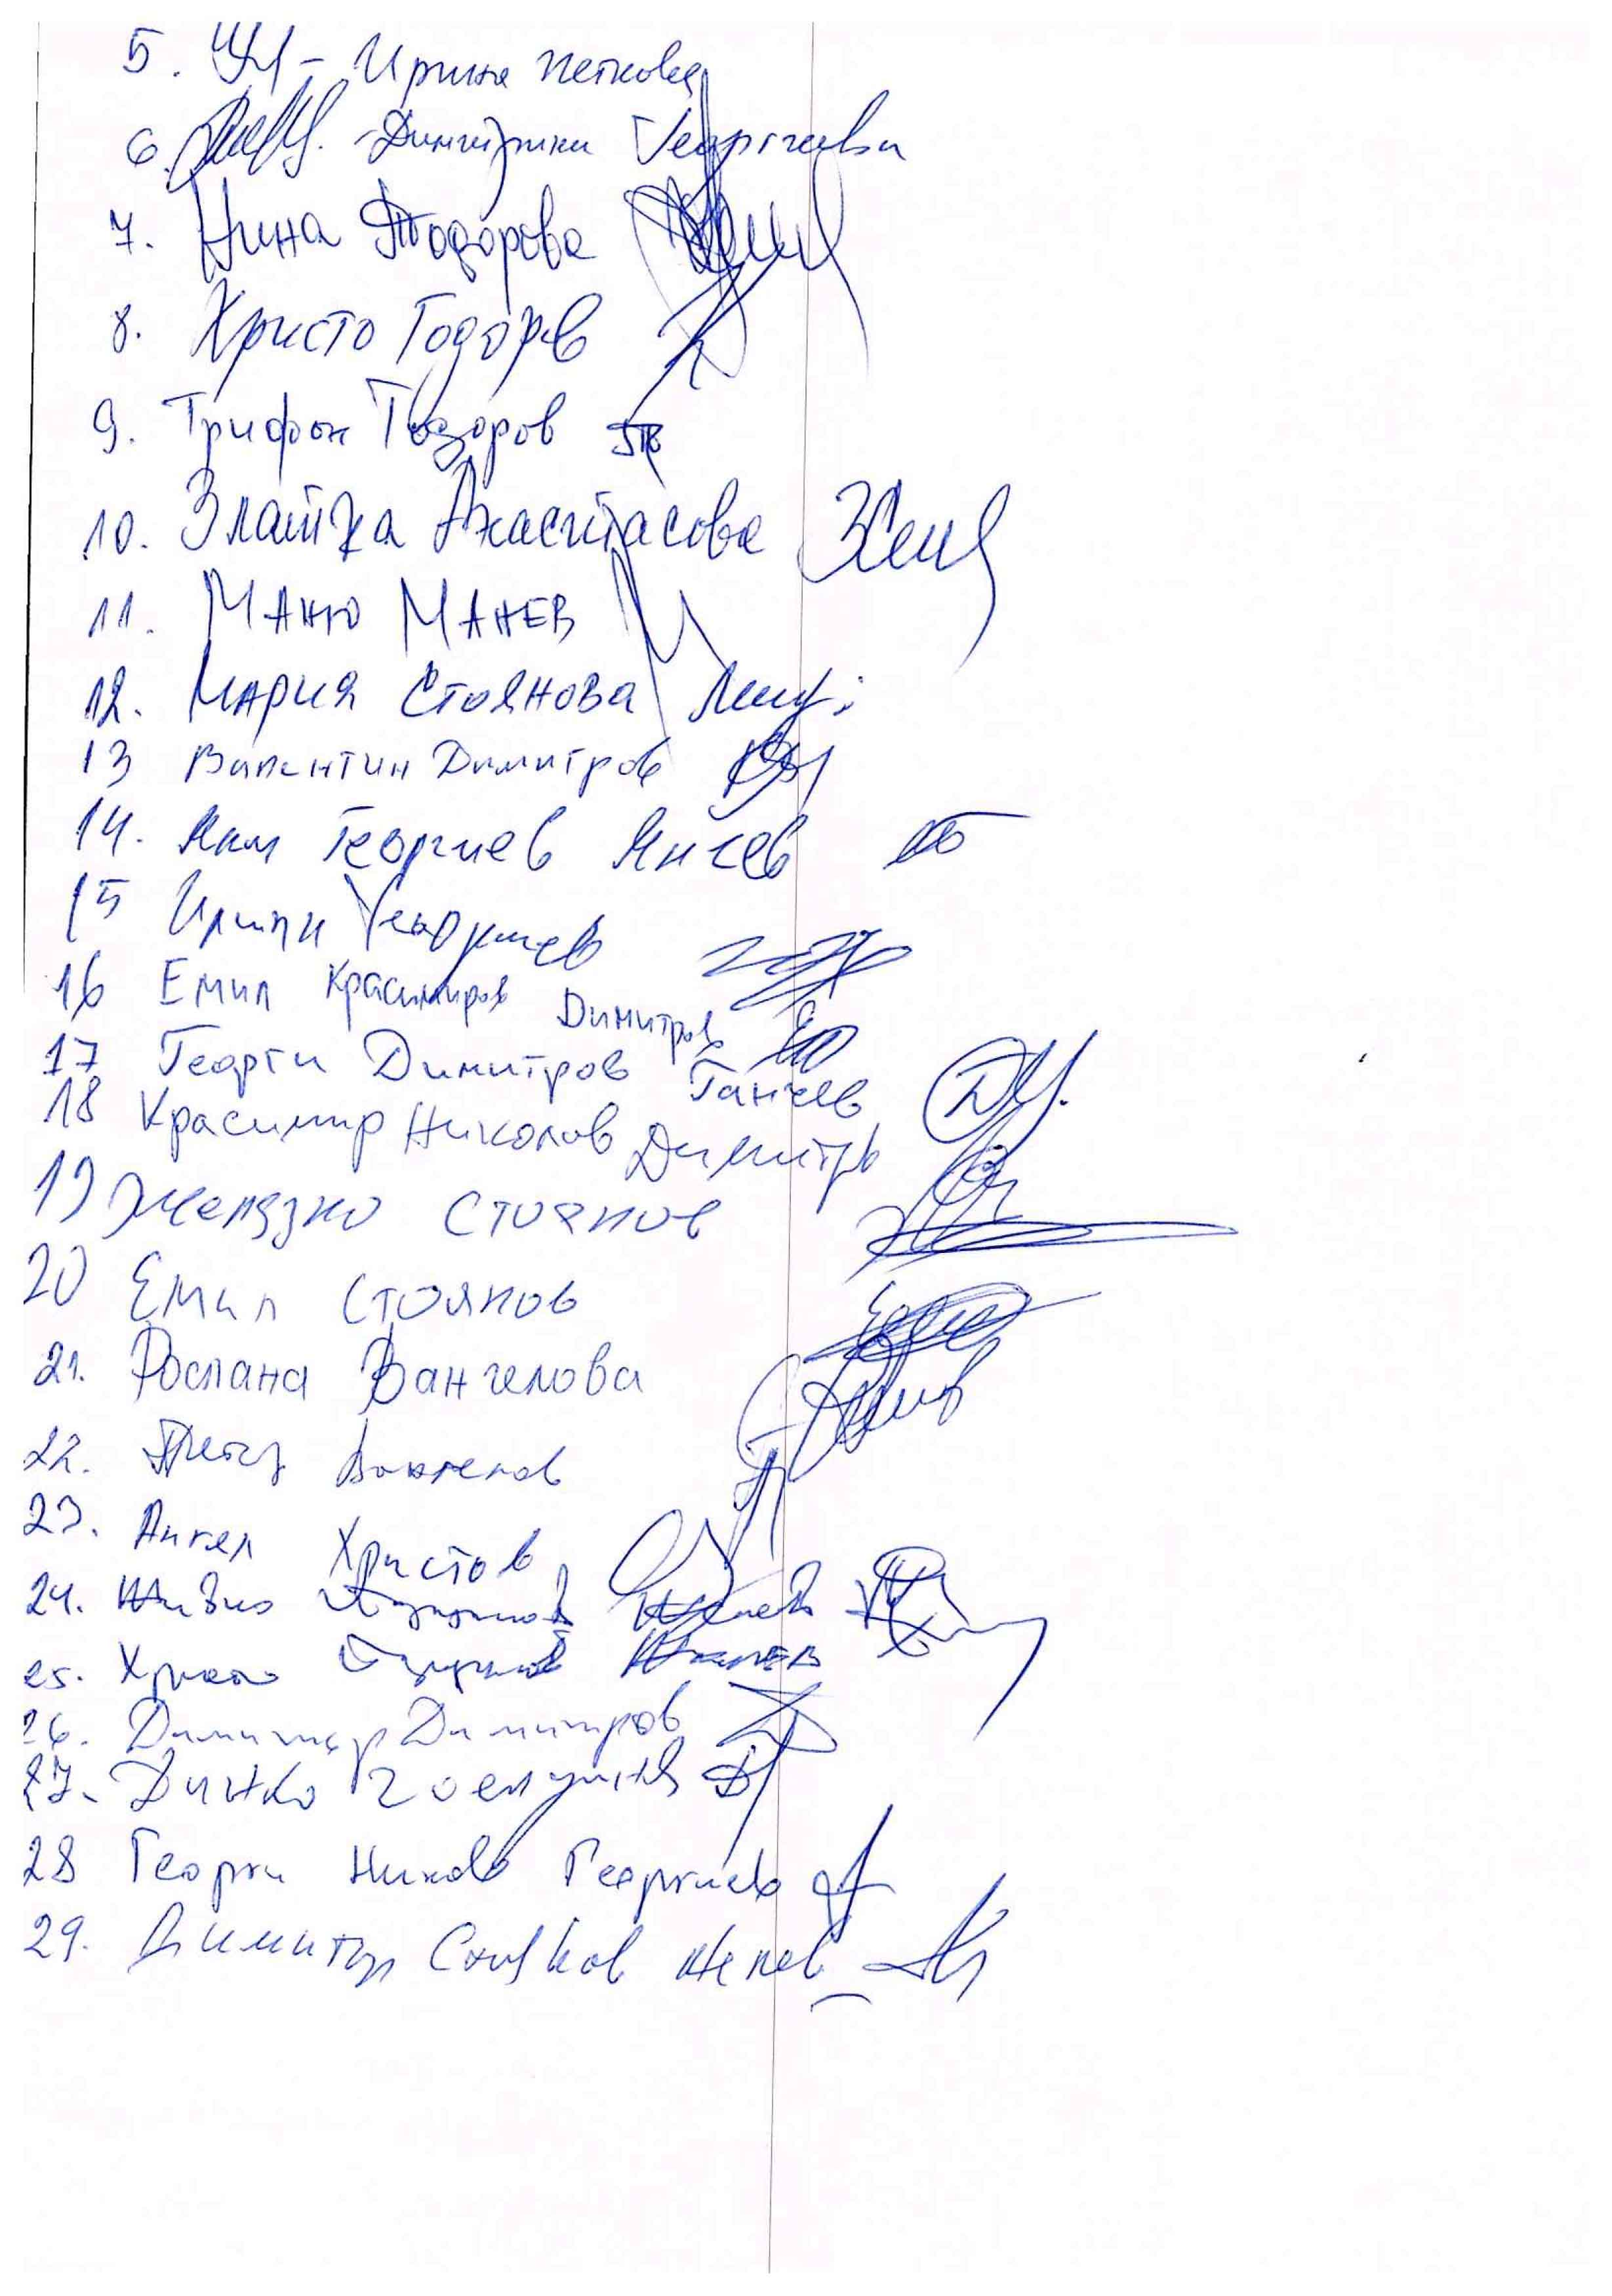 5. Ирина Петкова
6. Димитрина Георгиева
7. Нина Тодорова
8. Христо Тодоров
9. Трифон Тодоров
10. Златка Анастасова
11. Маню Манев
12. Мария Стоянова
13 Валентин Димитров
14. Яни Георгиев Янчев
15 Георгиев
16 Емил Красимиров Димитров
17 Георги Димитров Ганчев
18 Красимир Николов Димитров
19 Желязко Стоянов
20 Емил Стоянов
21. Рослана Вангелова
22. Вангелов
23. Ангел Христов
24. Живко Желев
25. Христо Желев
26. Димитър Димитров
27. Динко
28 Георги Георгиев
29. Димитър Желев